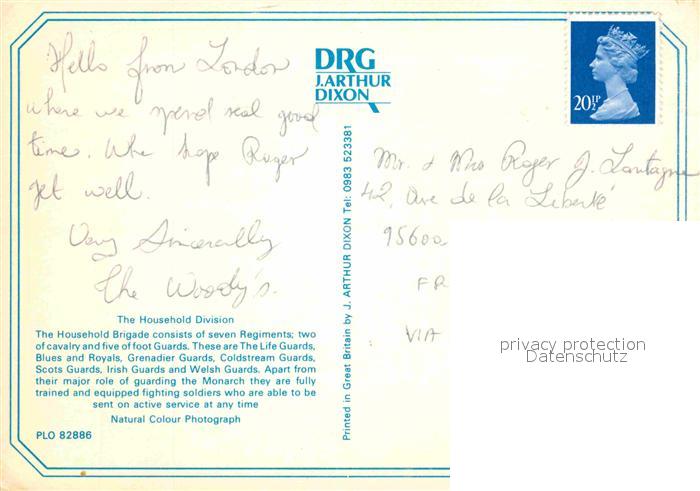 Hello from London
where we spend real good
time. Whe hope Roger
get well.
Very Sincerally
the Woody's.
The Household Division
The Household Brigade consists of seven Regiments; two
of cavalry and five of foot Guards. These are The Life Guards,
Blues and Royals, Grenadier Guards, Coldstream Guards,
Scots Guards, Irish Guards and Welsh Guards. Apart from
their major role of guarding the Monarch they are fully
trained and equipped fighting soldiers who are able to be
sent on active service at any time
Natural Colour Photograph
PLO 82886
DRG
J.ARTHUR
DIXON
Printed in Great Britain by J. ARTHUR DIXON Tel: 0983 523381
20½P
Mr. & Mrs Roger J. Lantagne
42, Ave de la Liberté
95600
FR
VIA
privacy protection
Datenschutz